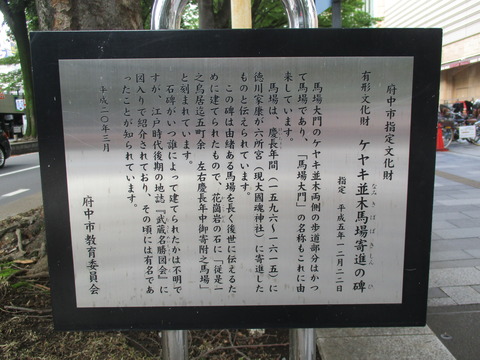 府中市指定文化財
有形文化財 ケヤキ並木馬場寄進の碑
なみきばばきしん ひ
指定 平成五年一二月二二日
馬場大門のケヤキ並木両側の歩道部分はかつ
て馬場であり、「馬場大門」の名称もこれに由
来しています。
馬場は、慶長年間(一五九六~一六一五)に
徳川家康が六所宮(現大國魂神社)に寄進した
ものと伝えられています。
この碑は由緒ある馬場を長く後世に伝えるた
めに建てられたもので、花崗岩の石に「従是一
之鳥居迄五町余 左右慶長年中御寄附之馬場」
と刻まれています。
石碑がいつ誰によって建てられたかは不明で
すが、江戸時代後期の地誌『武蔵名勝図会』に
図入りで紹介されており、その頃には有名であ
ったことが知られています。
平成二〇年三月
府中市教育委員会